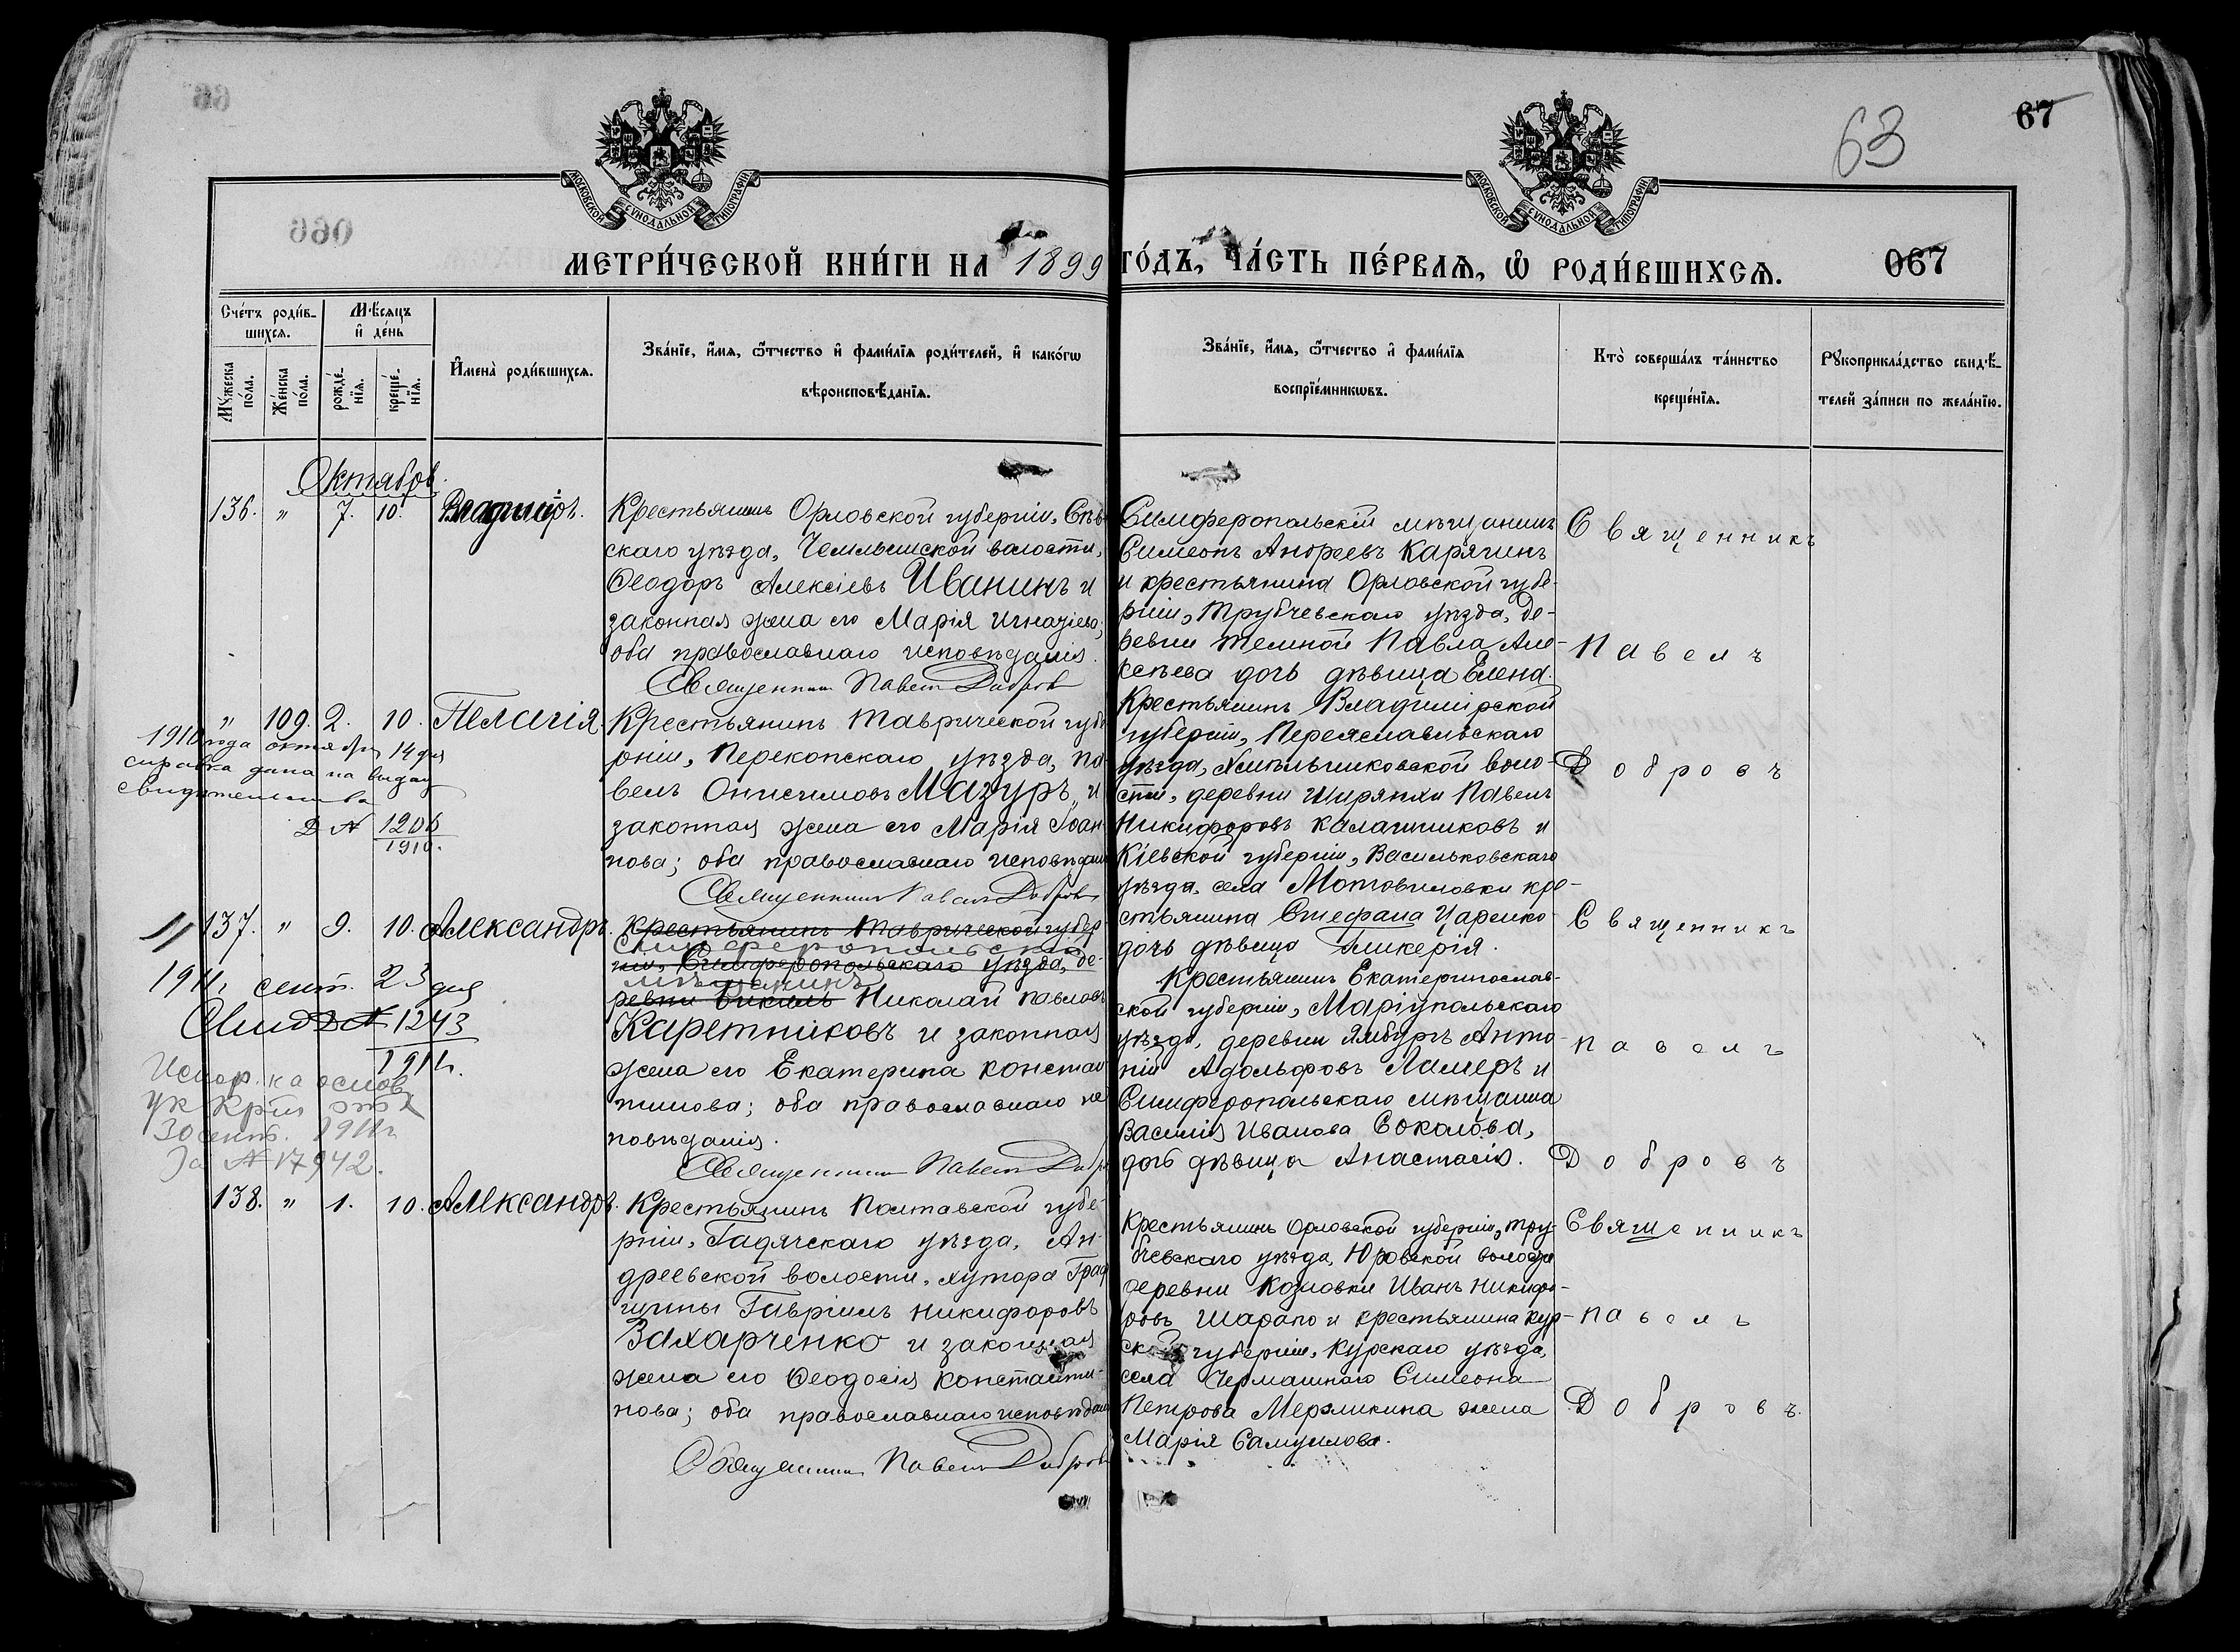 63
67
МОСКОВСКОЙ СУНОДАЛЬНОЙ ТИПОГРАФІИ
МОСКОВСКОЙ СУНОДАЛЬНОЙ ТИПОГРАФІИ
МЕТРИ́ЧЕСКОЙ КНИ́ГИ НА 1899 ГО́ДЪ, ЧА́СТЬ ПЕ́РВАѦ, Ѡ҆ РОДИ́ВШИХСѦ.
067
Сче́тъ роди́в-
шихсѧ.
Мѣ́сѧцъ
и҆ де́нь
Мꙋ́жеска по́ла.
Же́нска по́ла.
рожде́-нїѧ.
креще́-нїѧ.
И҆мена̀ роди́вшихсѧ.
Зва́нїе, и҆́мѧ, ѻ҆́тчество и҆ фами́лїѧ роди́телей, и҆ како́гѡ
вѣроисповѣ́данїѧ.
Зва́нїе, и҆́мѧ, ѻ҆́тчество и҆ фами́лїѧ
воспрїе́мникѡвъ.
Кто̀ соверша́лъ та́инство
креще́нїѧ.
Рꙋкоприкла́дство свидѣ́-
телей за́писи по жела́нїю.
Октябрь.
136. " 7. 10. Владиміръ.
Крестьянинъ Орловской губерніи, Сѣв-
скаго уѣзда, волости,
Ѳеодоръ Алексіевъ Иванинъ и
законная жена его Марія Игнатіева;
оба православнаго исповѣданія.
Священникъ Павелъ Добровъ
Симферопольскій мѣщанинъ
Симеонъ Андреевъ Карягинъ
и крестьянина Орловской губе-
рніи, Трубчевскаго уѣзда, де-
ревни Темной Павла Але-
ксѣева дочь дѣвица Елена.
Священникъ
Павелъ
Добровъ
" 109. 2. 10. Пелагія.
1910 года октября 14 дня
справка дана на выдачу
свидѣтельства
Д № 1206
1910.
Крестьянинъ Таврической губе-
рніи, Перекопскаго уѣзда, Па-
велъ Онисимовъ Мазуръ, и
законная жена его Марія Іоан-
нова; оба православнаго исповѣданія
Священникъ Павелъ Добровъ
Крестьянинъ Владимірской
губерніи, Переяславльскаго
уѣзда, воло-
сти, деревни Ширяихи Павелъ
Никифоровъ Калашниковъ и
Кіевской губерніи, Васильковскаго
уѣзда, села Мотовиловки кре-
стьянина Стефана Царенко-
дочь дѣвица Гликерія.
137. " 9. 10. Александръ.
1911, сент. 23 дня
Свид. № 1243
1911г.
Испр. на основ
ук Крым отъ
30 сент. 1911г
За № 17942.
Крестьянинъ Таврической губер-
Симферопольскій
ніи, Симферопольскаго уѣзда, де-
мѣщанинъ
ревни Николай Павловъ
Каретниковъ и законная
жена его Екатерина Констан-
тинова; оба православнаго ис-
повѣданія.
Священникъ Павелъ Добровъ
Крестьянинъ Екатеринослав-
ской губерніи, Маріупольскаго
уѣзда, деревни Ямбургъ Анто-
ній Адольфовъ Ламеръ и
Симферопольскаго мѣщанина
Василія Иванова Соколова,
дочь дѣвица Анастасія.
Священникъ
Павелъ
Добровъ
138. " 1. 10. Александръ.
Крестьянинъ Полтавской губе-
рніи, Гадячскаго уѣзда, Ан-
дреевской волости, хутора
Гавріилъ Никифоровъ
Захарченко и законная
жена его Ѳеодосія Константи-
нова; оба православнаго исповѣданія
Священникъ Павелъ Добровъ
Крестьянинъ Орловской губерніи, Тру-
бчевскаго уѣзда, Юровской волости
деревни Козловки Иванъ Никифо-
ровъ Шарапо и крестьянина Кур-
ской губерніи, Курскаго уѣзда,
села Чермашнаго Симеона
Петрова Мерзликина жена
Марія Самуилова.
Священникъ
Павелъ
Добровъ.